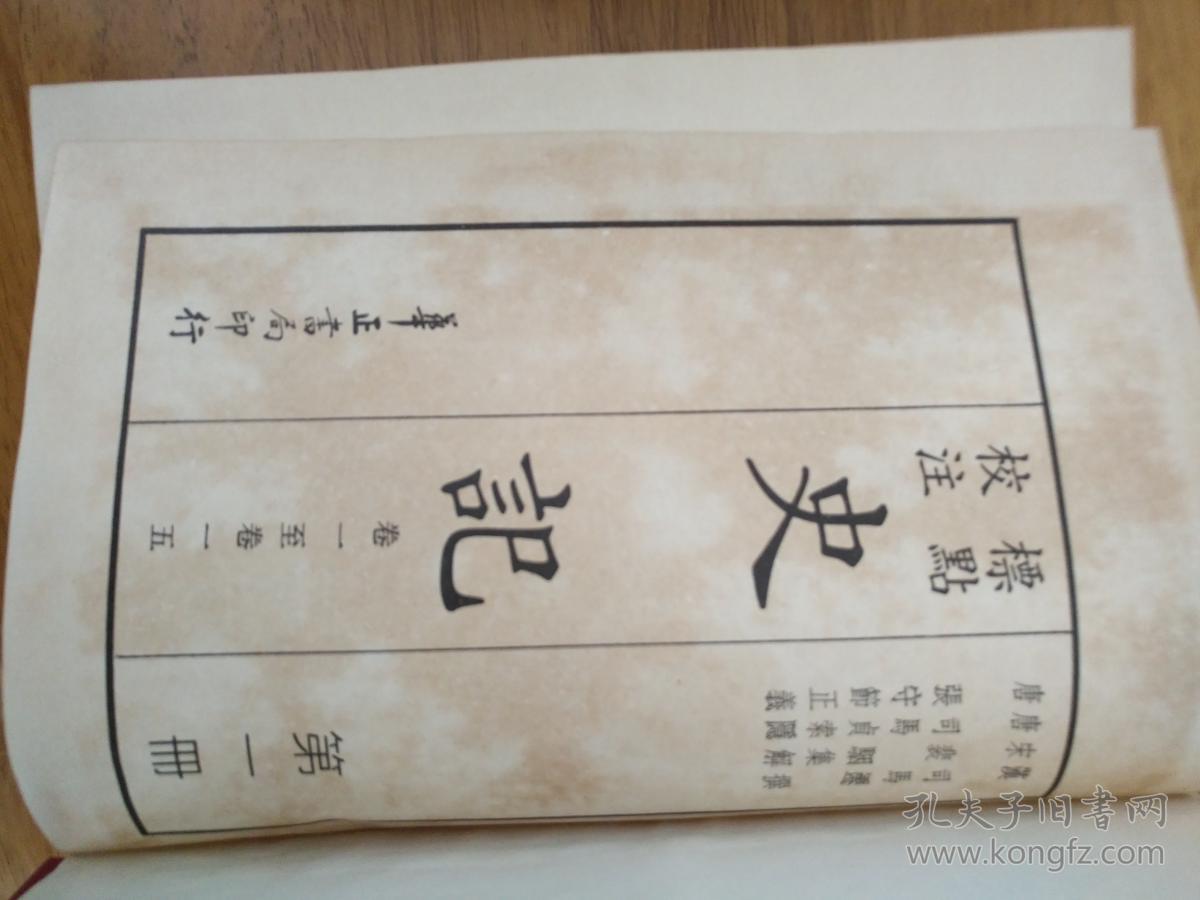 漢司馬遷撰
宋裴駰集解
唐司馬貞索隱
唐張守節正義
第一冊
標點
校注
史記
卷一至卷一五
華正書局印行
孔夫子旧书网
www.kongfz.com